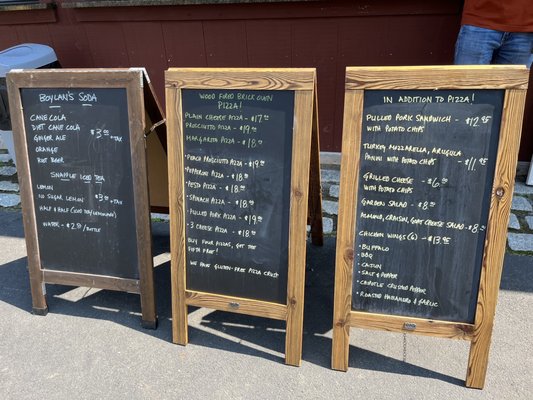 Boylan's Soda
Cane Cola
Diet Cane Cola
Ginger Ale
Orange
Root Beer
$3 +tax
Snapple Iced Tea
Lemon
No Sugar Lemon
Half & Half (Iced Tea/Lemonade)
$3 +tax
Water - $2.50 /Bottle
Wood Fired Brick Oven
Pizza!
Plain Cheese Pizza - $17
Prosciutto Pizza - $19
Margarita Pizza - $18
• Peach Prosciutto Pizza - $19
• Pepperoni Pizza - $18
• Pesto Pizza - $18
• Spinach Pizza - $18
• Pulled Pork Pizza - $19
• 3 Cheese Pizza - $18
Buy four pizzas, get the
fifth free!
We have gluten-free pizza crust
In Addition to Pizza!
Pulled Pork Sandwich - $13.95
with Potato Chips
Turkey Mozzarella, Arugula
Panini with Potato Chips - $11.95
Grilled Cheese - $6
with Potato Chips
Garden Salad - $8
Almond, Craisin, Goat Cheese Salad - $8
Chicken Wings (8) - $13.95
• Buffalo
• BBQ
• Cajun
• Salt & Pepper
• Chipotle Crusted Pepper
• Roasted Habanero & Garlic